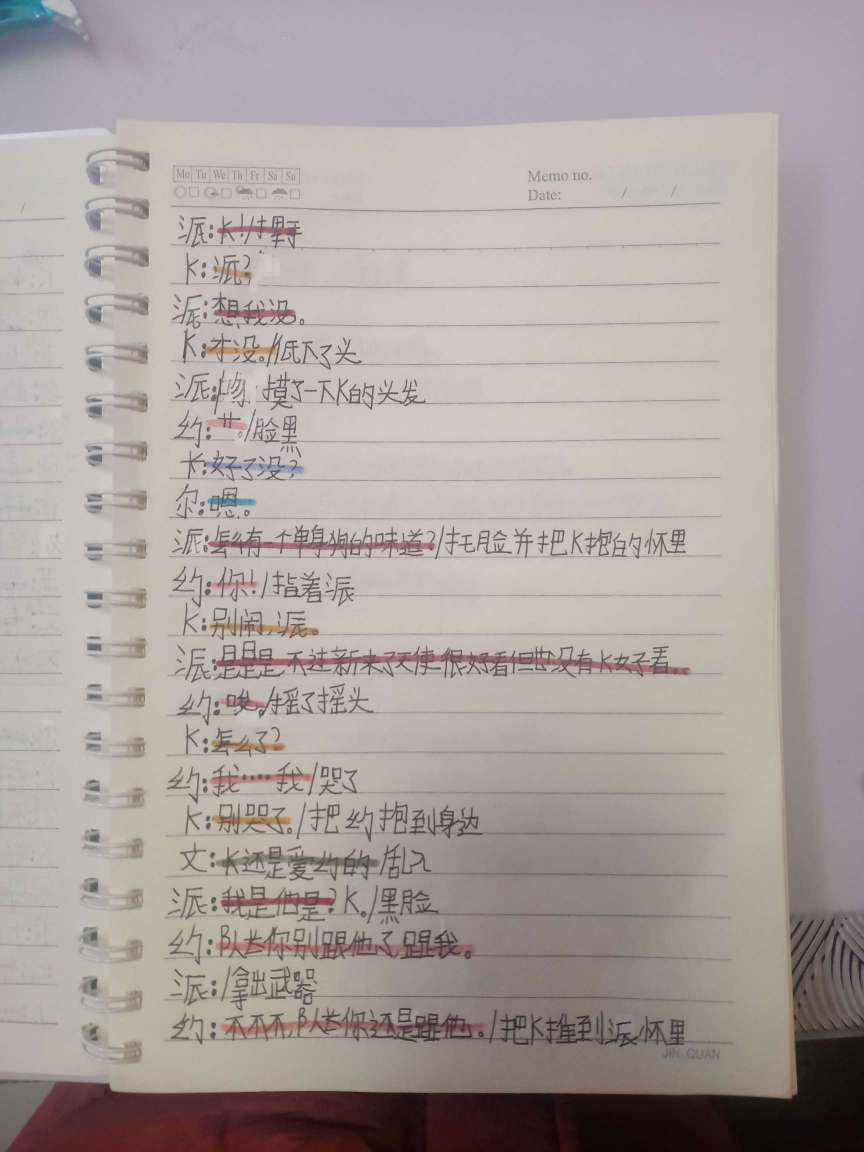 Mo Tu We Th Fr Sa Su
Memo no.
Date: / /
派:K!/挥手
K:派?
派:想我没。
K:才没。/低下了头
派:/摸了一下K的头发
约:艹。/脸黑
卡:好了没?
尔:嗯。
派:怎么有一个单身狗的味道?/托脸并把K抱的怀里
约:你!/指着派
K:别闹,派。
派:是是是,不过新来了天使很好看但没有K好看。
约:唉。/摇了摇头
K:怎么了?
约:我····我/哭了
K:别哭了。/把约抱到身边
文:K还是爱约的/乱入
派:我是他是?K。/黑脸
约:队长你别跟他了,跟我。
派:/拿出武器
约:不不不,队长你还是跟他。/把K推到派怀里
JIN QUAN